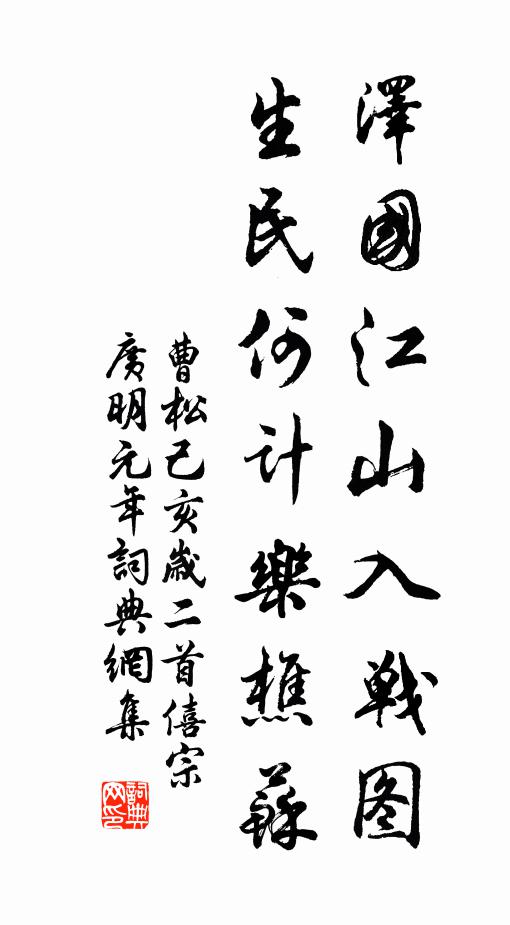 澤國江山入戦图
生民何计樂樵蘇
曹松己亥歲二首僖宗
廣明元年詞典網集
詞典网印